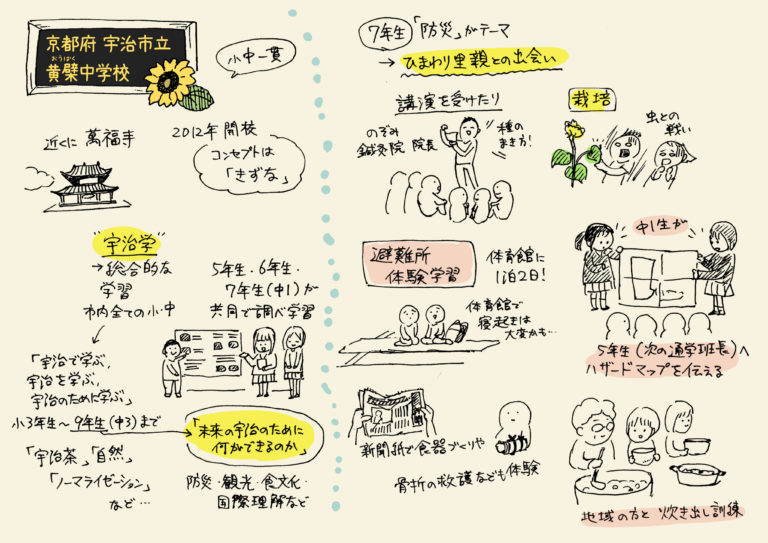 京都府 宇治市立
おうばく
黄檗中学校
小中一貫
近くに 萬福寺
2012年 開校
コンセプトは
「きずな」
"宇治学"
→総合的な
学習
市内全ての小・中
5年生・6年生・
7年生(中1)が
共同で調べ学習
「宇治で学ぶ,
宇治を学ぶ,
宇治のために学ぶ」
小3年生〜9年生(中3)まで
「未来の宇治のために
何ができるのか」
「宇治茶」「自然」
「ノーマライゼーション」
など…
防災・観光・食文化・
国際理解など
7年生 「防災」がテーマ
→ ひまわり里親との出会い
講演を受けたり
のぞみ
鍼灸院 院長
種の
まき方!
栽培
虫との
戦い
避難所
体験学習
体育館に
1泊2日!
体育館で
寝起きは
大変かも…
中1生が
5年生(次の通学班長)へ
ハザードマップを伝える
新聞紙で食器づくりや
骨折の救護なども体験
地域の方と 炊き出し訓練